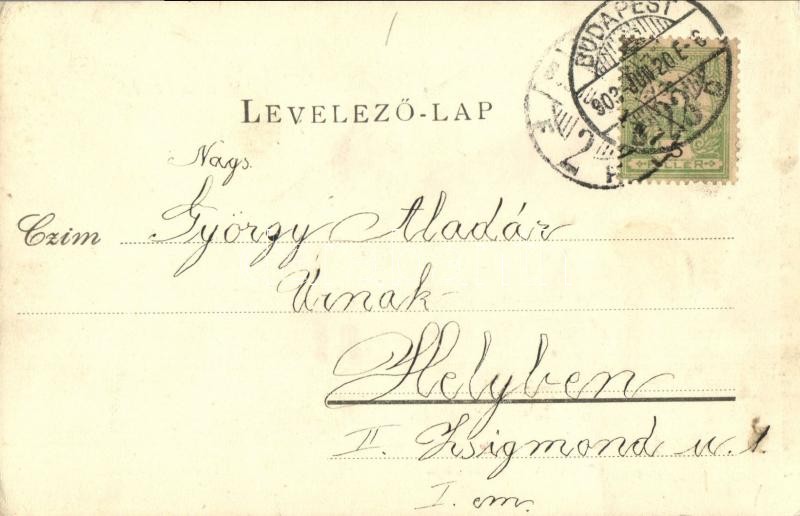 BUDAPEST
903 JUN. 20. E-6
LEVELEZŐ-LAP
Nags.
Czim György Aladár
Úrnak
Helyben
II. Zsigmond u. 1.
I. em.